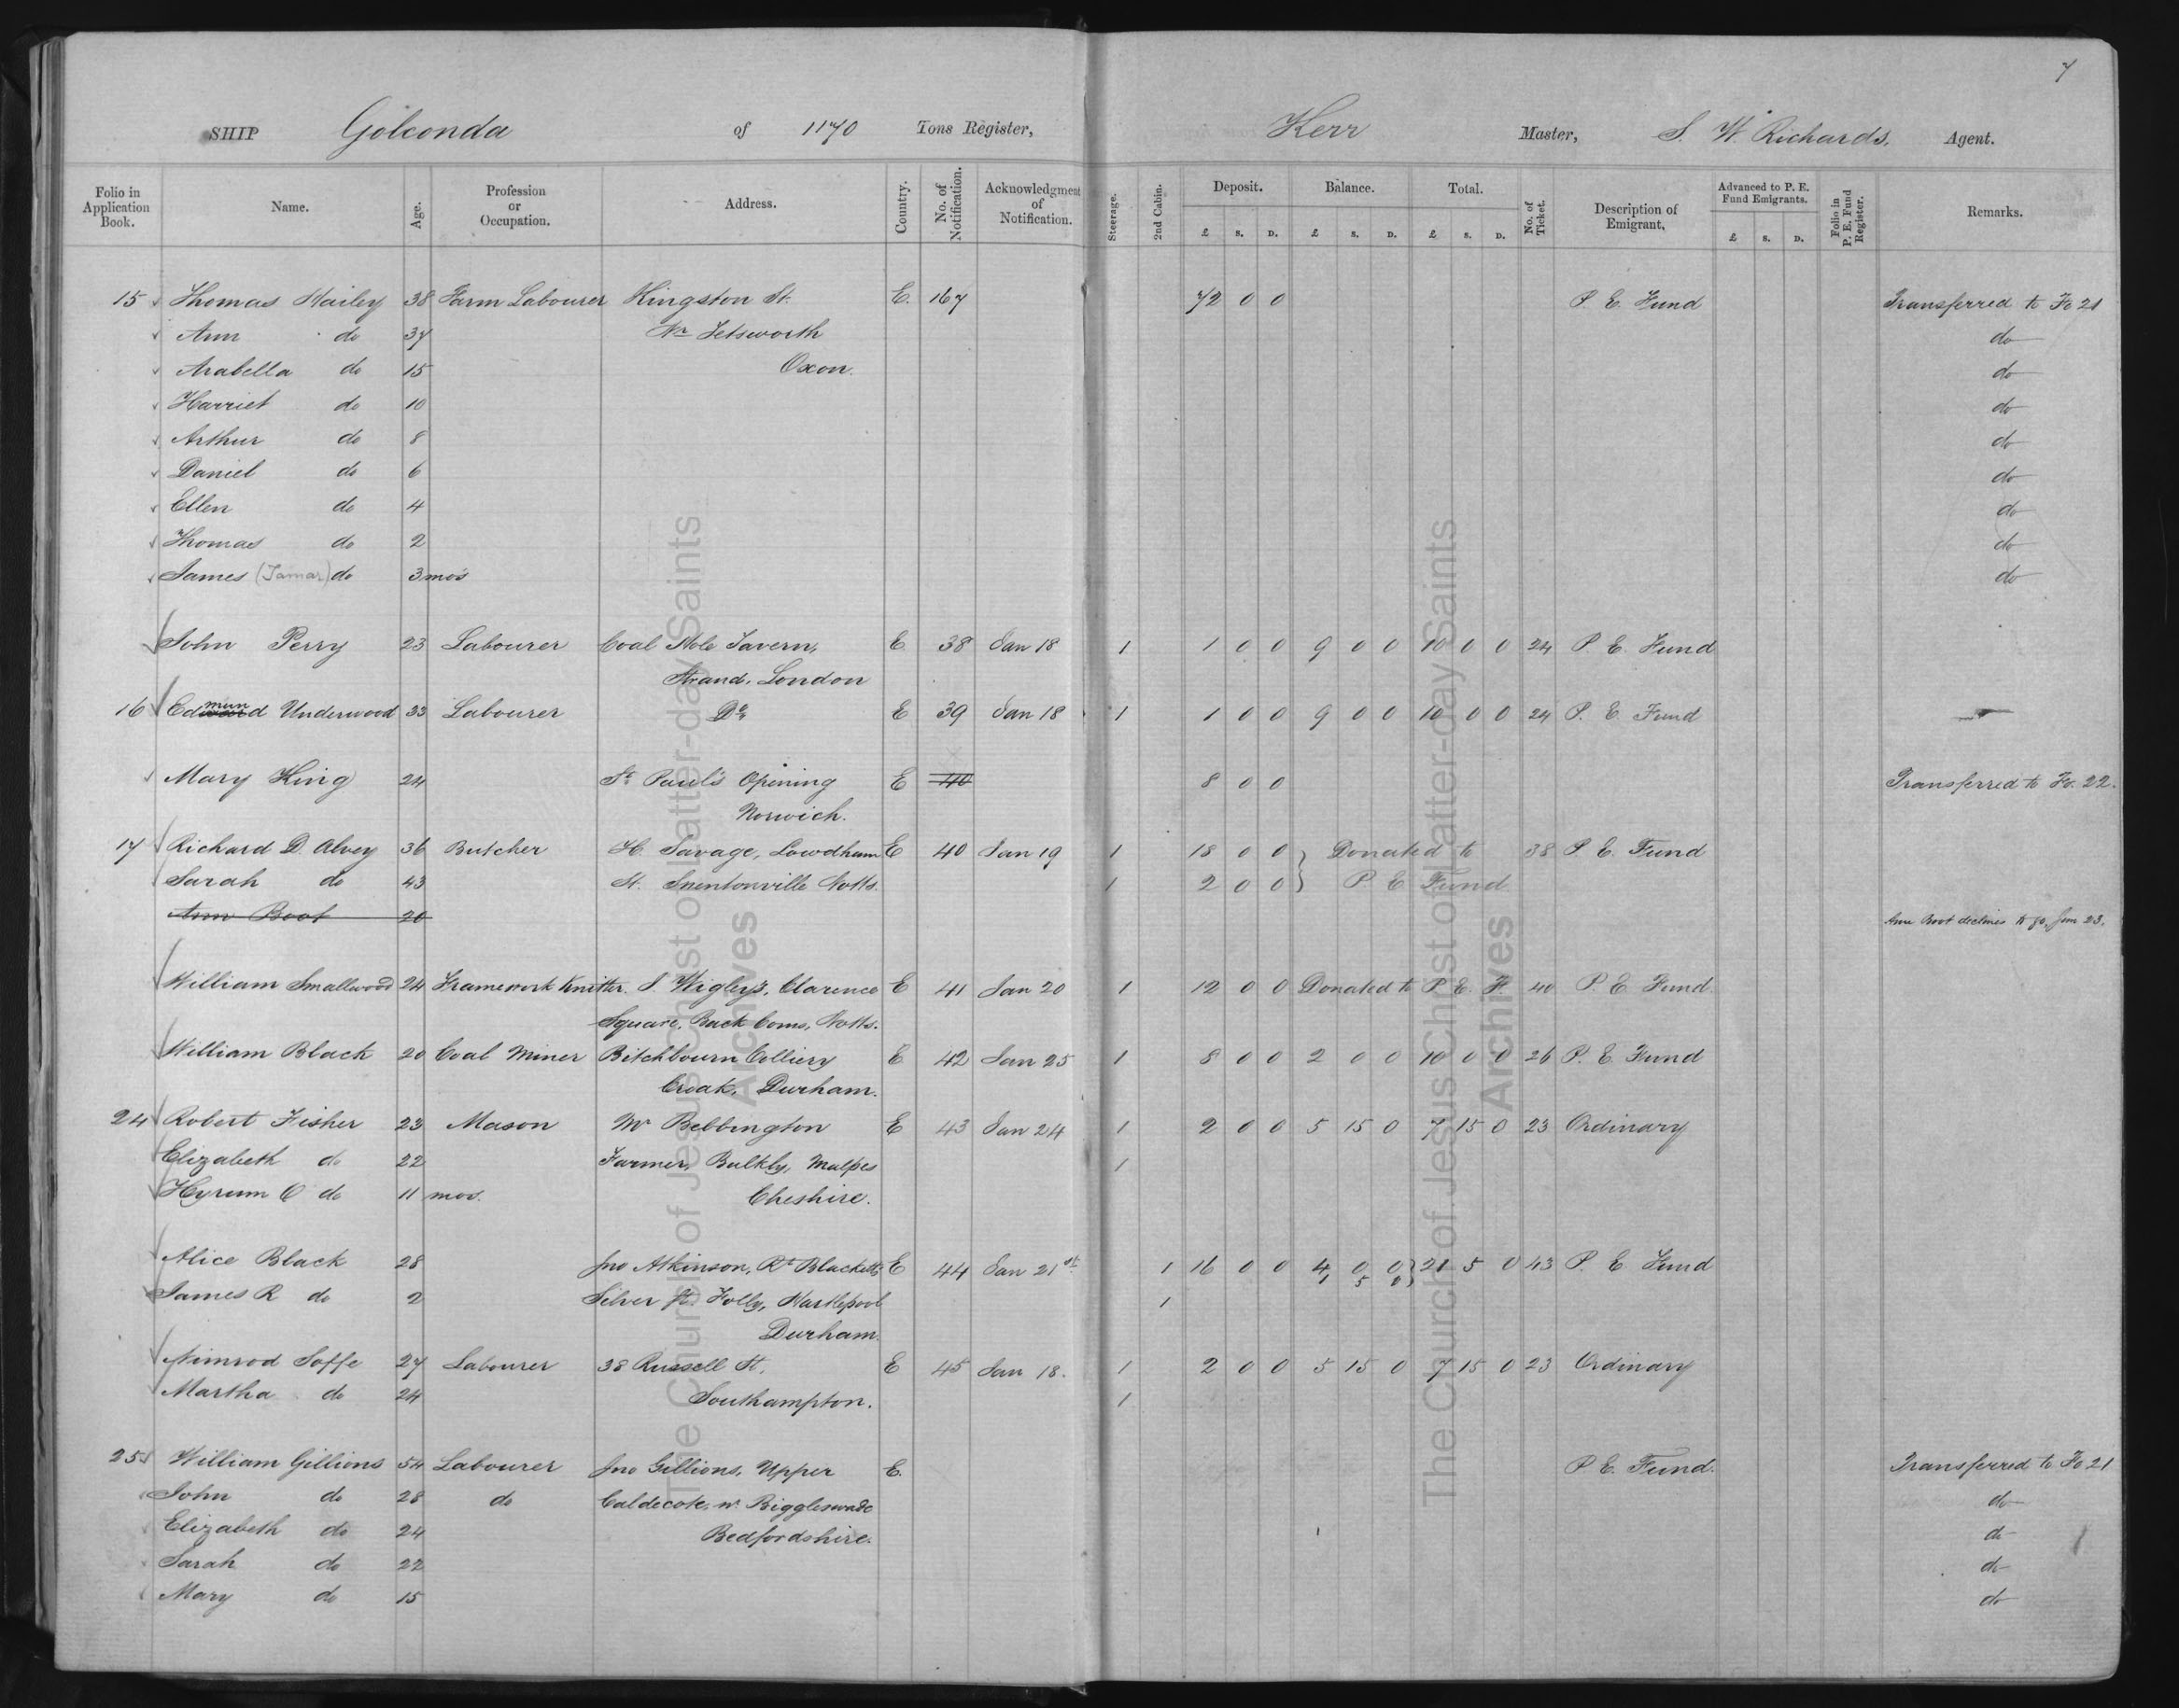 7
SHIP Golconda of 1170 Tons Register, Kerr Master, S. W. Richards, Agent.
Folio in Application Book. Name. Age. Profession or Occupation. Address. Country. No. of Notification. Acknowledgment of Notification. Steerage. 2nd Cabin. Deposit. £ s. D. Balance. £ s. D. Total. £ s. D. No. of Ticket. Description of Emigrant. Advanced to P. E. Fund Emigrants. £ s. D. Folio in P. E. Fund Register. Remarks.
15 Thomas Hailey 38 Farm Labourer Kingston St. E. 167 72 0 0 P. E. Fund Transferred to Fo 21
Ann do 37 Nr Tetsworth do
Arabella do 15 Oxon. do
Harriet do 10 do
Arthur do 8 do
Daniel do 6 do
Ellen do 4 do
Thomas do 2 do
James (Tamar) do 3 mos do
John Perry 23 Labourer Coal Hole Tavern, E 38 Jan 18 1 1 0 0 9 0 0 10 0 0 24 P. E. Fund
Strand, London
16 Edmund Underwood 33 Labourer Do E 39 Jan 18 1 1 0 0 9 0 0 10 0 0 24 P. E. Fund
Mary King 24 St Paul's Opening E 40 8 0 0 Transferred to Fo. 22.
Norwich.
17 Richard D. Alvey 36 Butcher H. Savage, Lowdham E 40 Jan 19 1 18 0 0 } Donated to 38 P. E. Fund
Sarah do 43 St. Snentonville Notts. 1 2 0 0 } P E Fund
Ann Boot 20 Ann Boot declines to go, Jan 23.
William Smallwood 24 Framework Knitter. J. Wigley's, Clarence E 41 Jan 20 1 12 0 0 Donated to P. E. F. 40 P. E. Fund.
Square, Back Coms, Notts.
William Black 20 Coal Miner Bitchbourn Colliery E 42 Jan 25 1 8 0 0 2 0 0 10 0 0 26 P. E. Fund
Croak, Durham.
24 Robert Fisher 23 Mason Mr Bebbington E 43 Jan 24 1 2 0 0 5 15 0 7 15 0 23 Ordinary
Elizabeth do 22 Farmer, Bulkly, Malpes 1
Hyrum O do 11 mos. Cheshire.
Alice Black 28 Jno Atkinson, Rt Blacketts E 44 Jan 21st 1 16 0 0 4 0 0 } 21 5 0 43 P. E Fund
1 5 0 }
James R do 2 Silver St. Folly, Hartlepool 1
Durham.
Nimrod Soffe 27 Labourer 38 Russell St, E 45 Jan 18. 1 2 0 0 5 15 0 7 15 0 23 Ordinary
Martha do 24 Southampton. 1
25 William Gillions 54 Labourer Jno Gillions, Upper E. P E. Fund. Transferred to Fo 21
John do 28 do Caldecote, nr. Biggleswade do
Elizabeth do 24 Bedfordshire. do
Sarah do 22 do
Mary do 15 do
The Church of Jesus Christ of Latter-day Saints
Archives
The Church of Jesus Christ of Latter-day Saints
Archives